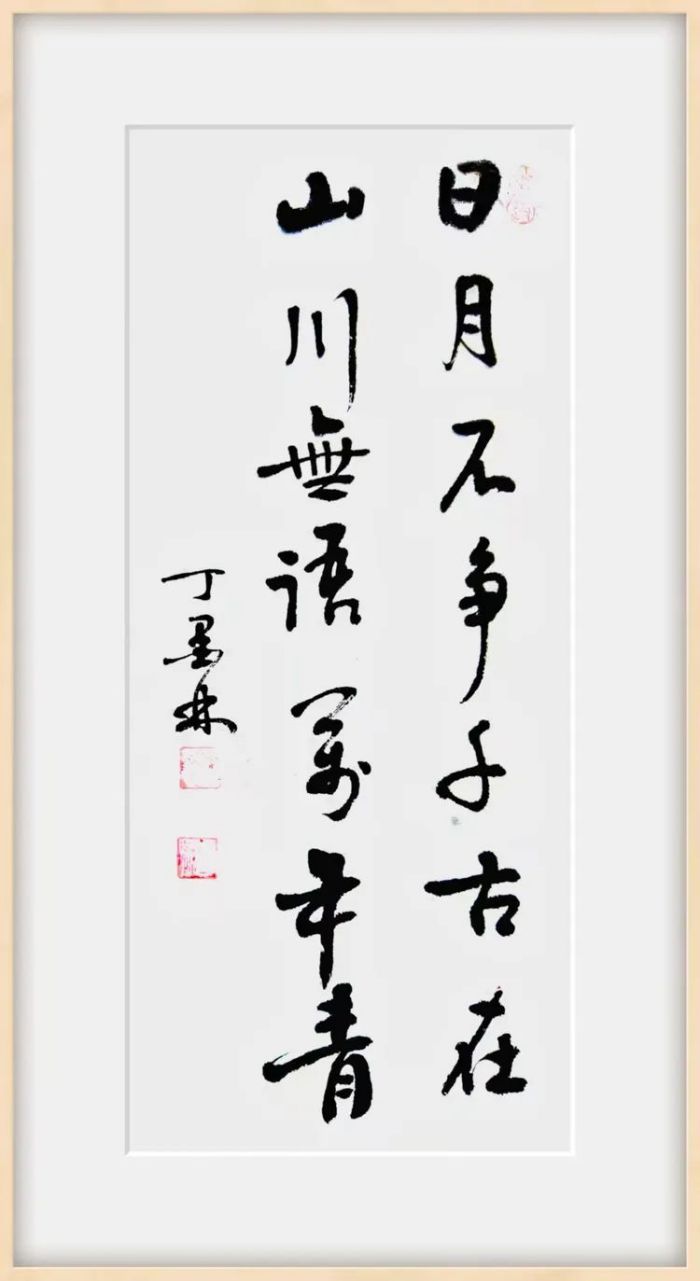 日月不争千古在
山川無語萬年青
丁墨林